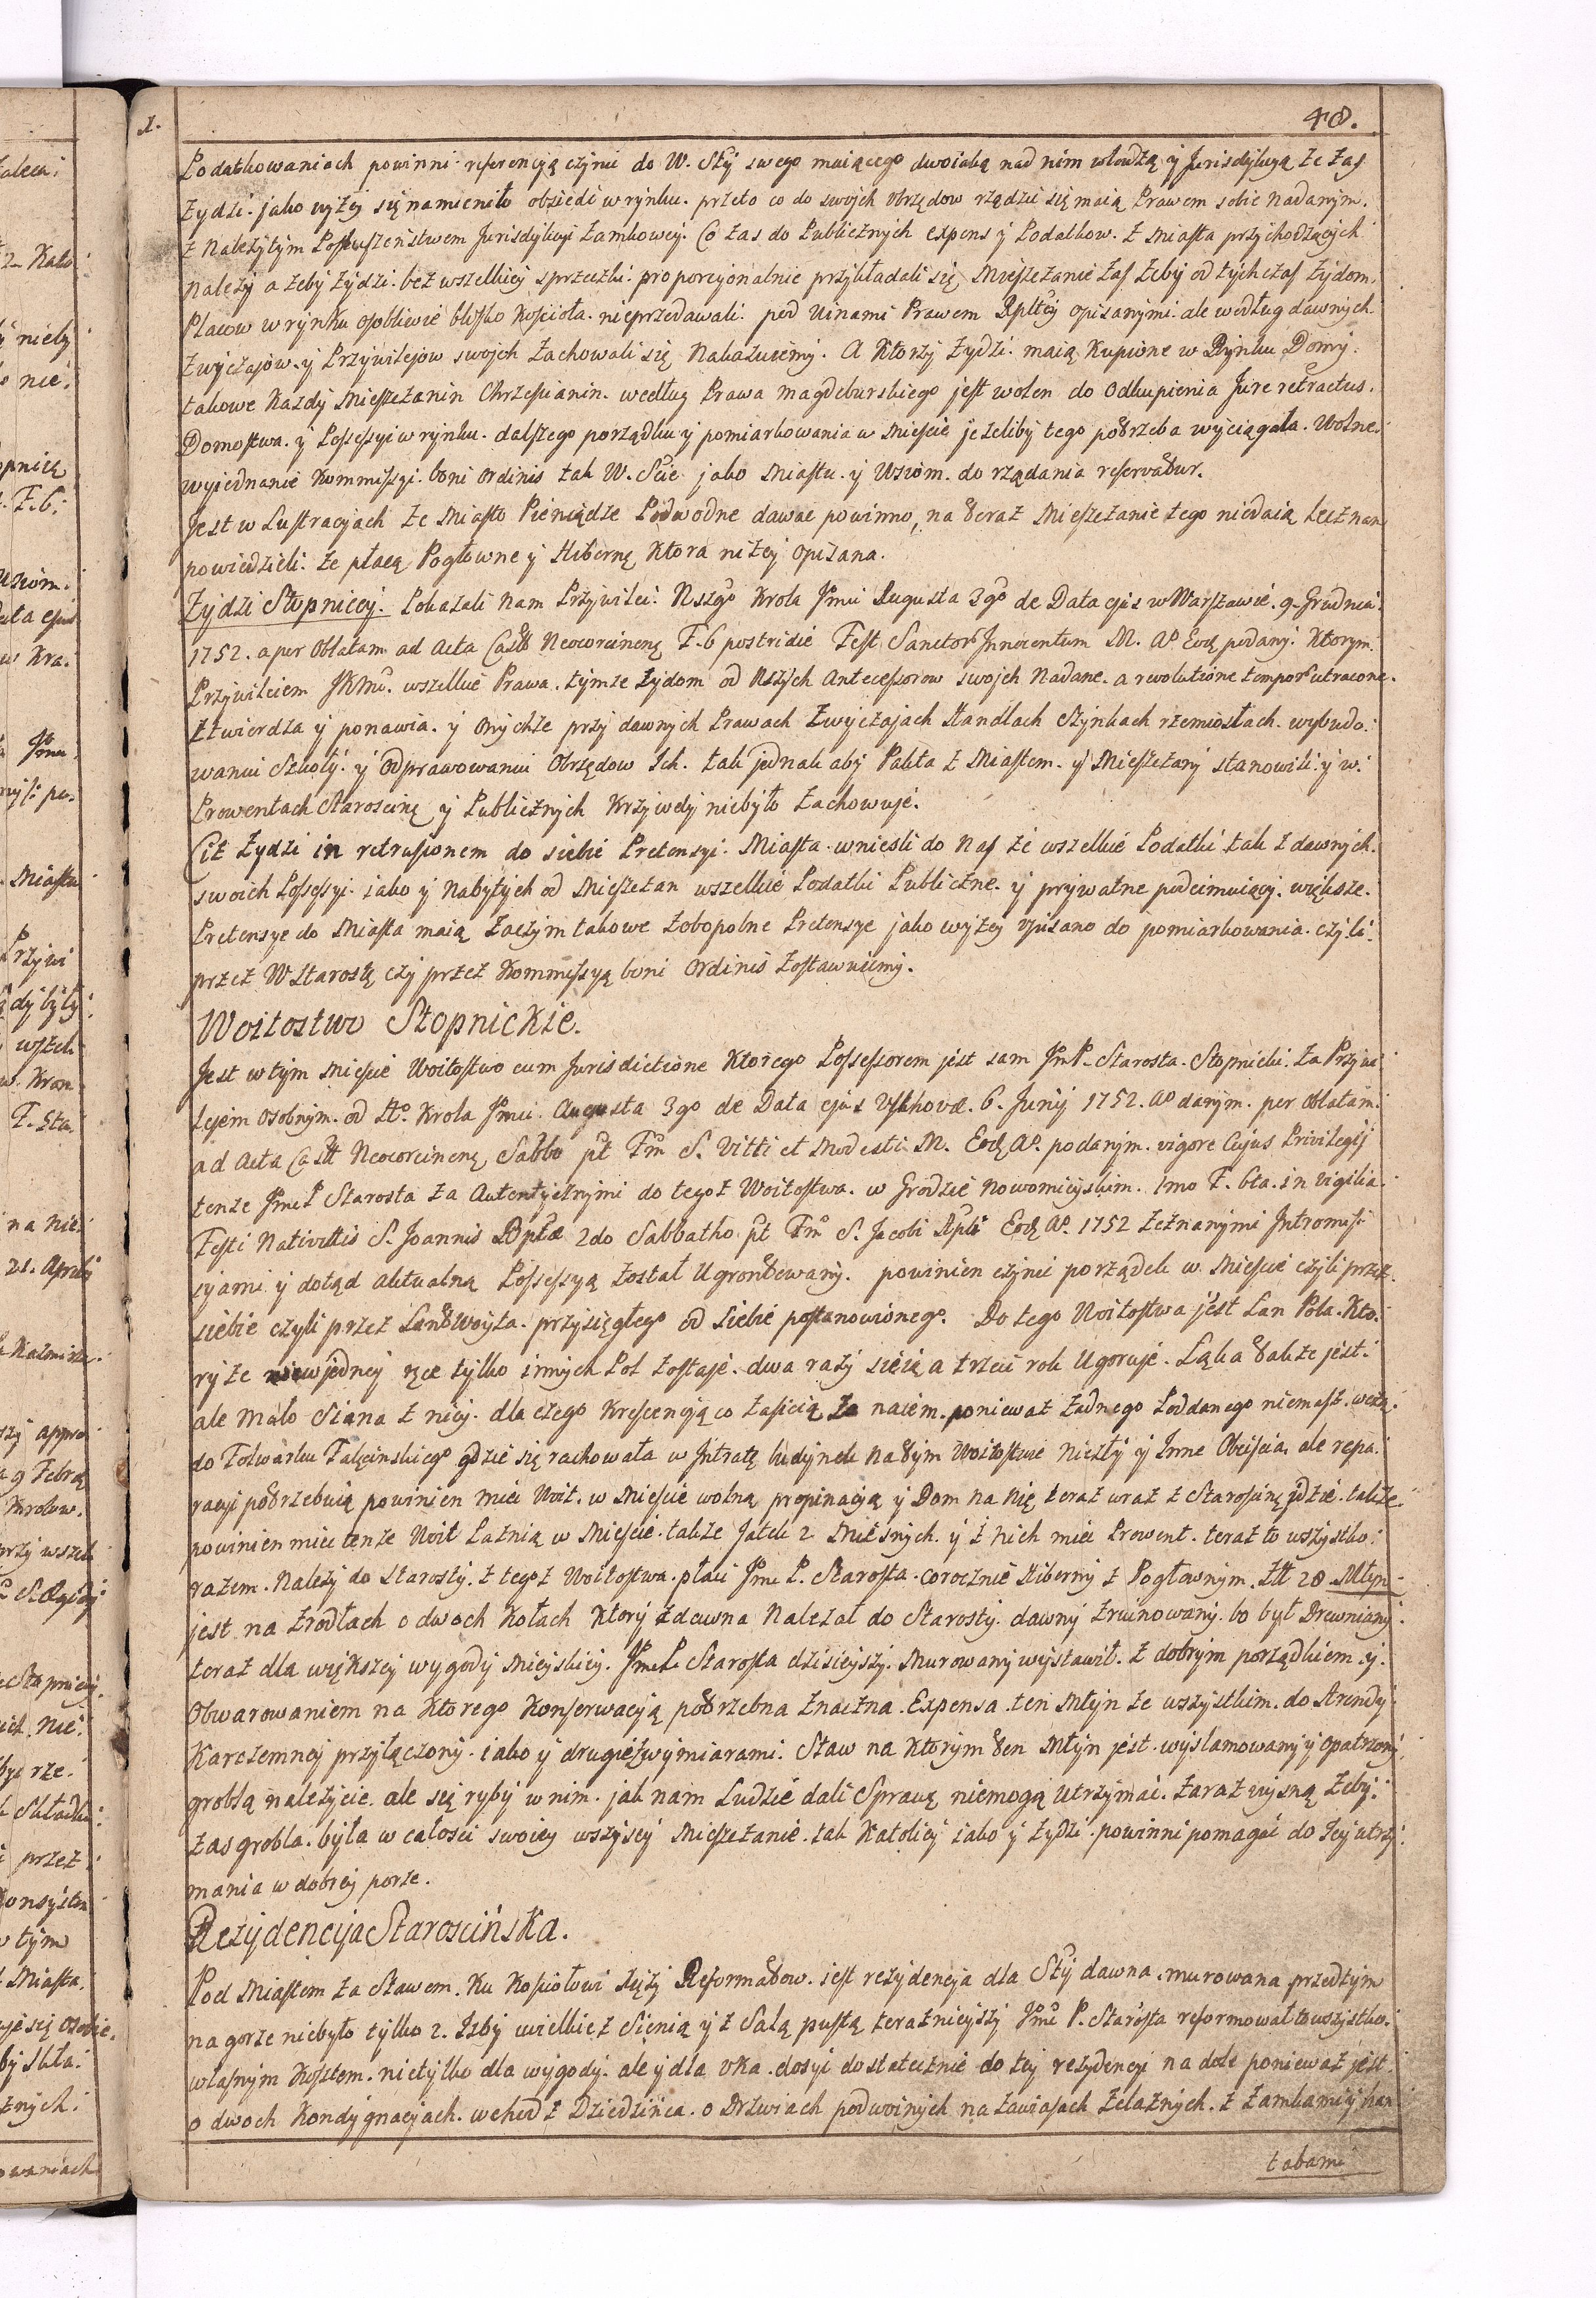 48.
Podatkowaniach powinni referencyą czynić do W. Sty swego maiącego dwoiaką nad nim władzą y Jurisdykcyą że zaś
Żydzi. jako wyżey się namieniło obsiedli w rynku. przeto co do swojch obrzędow rządzić się maią Prawem sobie nadanym.
z należytym Posłuszeństwem Jurisdykcyi Zamkowey. Co zas do Publicznych expens y Podatkow. z Miasta przychodzących
należy a żeby Żydzi. bez wszelkiey sprzeczki. proporcyonalnie przykładali się Mieszczanie zaś żeby od tych czas Żydom.
Placow w rynku osobliwie blisko Kościoła. nieprzedawali. pod Winami Prawem Rpltey opisanymi. ale według dawnych.
zwyczajow. y Przywilejow swojch zachowali się Nakazuiemy. A Ktorzy Żydzi. maią Kupione w Rynku Domy.
takowe Każdy Mieszczanin Chrześcianin. według Prawa Magdeburskiego jest wolen do odkupienia Jure retractus.
Domostwa. y Possessyi w rynku. dalszego porządku y pomiarkowania w Mieście jeżeliby tego potrzeba wyciągała. Wolne.
wyiednanie Kommissyi. boni ordinis tak W. Scie jako Miastu. y Usiom. do rządania reservatur.
Jest w Lustracyjach że Miasto Pieniądze Podwodne dawać powinno, na teraz Mieszczanie tego niedaią lecz nam
powiedzieli. że płacą Pogłowne y Hibernę Ktora niżey opisana.
Żydzi Stopniccy. Pokazali nam Przywiley. Nszgo Krola Jmci Augusta 3go de Data ejus w Warszawie. 9. Grudnia.
1752. a per Oblatam ad Acta Castr Neocorcinenę F. 6 postridie Fest Sanctor Innocentum M. Ao Eodę podany. Ktorym.
Przywileiem JKMci. wszelkie Prawa. tymże Żydom od Nszych Antecessorow swojch nadane. a revolutione tempor utracone.
ztwierdza y ponawia. y onychże przy dawnych Prawach zwyczajach Handlach Szynkach rzemiosłach. wybudo.
waniu Szkoły. y odprawowaniu Obrzędow Ich. tak jednak aby Pakta z Miastem. y Mieszczany stanowili. y w.
Prowentach Starościnę y Publicznych Krzywdy niebyło zachowuje.
Ciż Żydzi in retrusionem do siebie Pretensyi. Miasta. wnieśli do nas że wszelkie Podatki tak z dawnych.
swoich Possessyi. iako y nabytych od Mieszczan wszelkie Podatki Publiczne. y prywatne podeimuiący. większe.
Pretensye do Miasta maią zaczym takowe zobopolne Pretensye jako wyżey opisano do pomiarkowania. czyli.
przez W Starostę czy przez Kommissyą boni Ordinis zostawuiemy.
Woitostwo Stopnickie.
Jest w tym Mieście Woitostwo cum Jurisdictione Ktorego Possessorem jest sam JmP. Starosta. Stopnicki. za Przywi
lejem osobnym. od Ho. Krola Jmci. Augusta 3go de Data ejus Vschovæ. 6. Junij 1752. Ao danym. per oblatam.
ad Acta Castr Neocorcinenę Sabbo pt Fm S. Vitti et Modesti M. Eodę Ao. podanym. vigore Cujus Privilegij
tenże Jmc P Starosta za Autentycznymi do tegoż Woitostwa. w Grodzie Nowomieyskim. 1mo F. 6ta. in vigilia.
Festi Nativittis S. Joannis Bptæ 2do Sabbatho pt Fm S. Jacobi Apli Eodę Ao. 1752 zeznanymi Intromis
syami y dotąd aktualną Possessyą został Ugrontowany. powinien czynić porządek w Mieście czyli przez.
siebie czyli przez Landwoyta. przysięgłego od siebie postanowionego. Do tego Woitostwa jest Lan Pola. Kto.
ry że w jedney ręce tylko innych Pol zostaje. dwa razy sieią a trzeci rok Ugoruje. Łąka także jest.
ale mało siana z niey. dla czego Krescencyą co zasieią za naiem. ponieważ żadnego Poddanego niemasz. wożą.
do Folwarku Falęcinskiego gdzie się rachowała w Intratę budynek na tym Woitostwie niezły y Inne Obeiścia, ale repa.
racyi potrzebuią powinien mieć Woit. w Mieście wolną propinacyą y Dom na nię teraz wraz z Starościnę jdzie. także.
powinien mieć tenże Woit Łaźnią w Mieście. także Jatek 2 Mięsnych. y z nich mieć Prowent. teraz to wszystko.
razem. należy do Starosty. z tegoż Woitostwa. płaci Jmc P. Starosta. corocznie Hiberny z Pogłownym. Złt 28. Młyn.
jest na źrodłach o dwoch Kołach Ktory zdawna należał do Starosty. dawny zruinowany. bo był Drewniany.
teraz dla większey wygody Mieyskiey. Jmc P. Starosta dzisieyszy. Murowany wystawił. z dobrym porządkiem. y.
Obwarowaniem na Ktorego Konserwacyją potrzebna znaczna. Expensa. ten Młyn ze wszystkim. do Arendy
Karczemney przyłączony. iako y drugie z wymiarami. Staw na Ktorym ten Młyn jest. wyslamowany y opatrzony.
groblą należycie. ale się ryby w nim. jak nam Ludzie dali Sprawę niemogą utrzymać. zaraz wysną Żeby.
zas grobla. była w całości swoiey wszyscy Mieszczanie. tak Katolicy iako y Żydzi. powinni pomagać do Jey utrzy.
mania w dobrey porze.
Rezydencyja Starościńska.
Pod Miastem za Stawem. Ku Kościołowi Xięży Reformatow. iest rezydencja dla Sty dawna. murowana przedtym
na gorze niebyło tylko 2. Izby wielkie z Sienią y z Salą pustą teraźnieyszy Jmć P. Starosta reformował to wszystko.
własnym Kosztem. nietylko dla wygody. ale y dla oka. dosyć dostatecznie do tey rezydencyi na dole ponieważ jest.
o dwoch Kondygnacjach. wchod z Dziedzińca. o Drzwiach podwoinych na zawiasach Żelaznych. z Zamkami y han
tabami